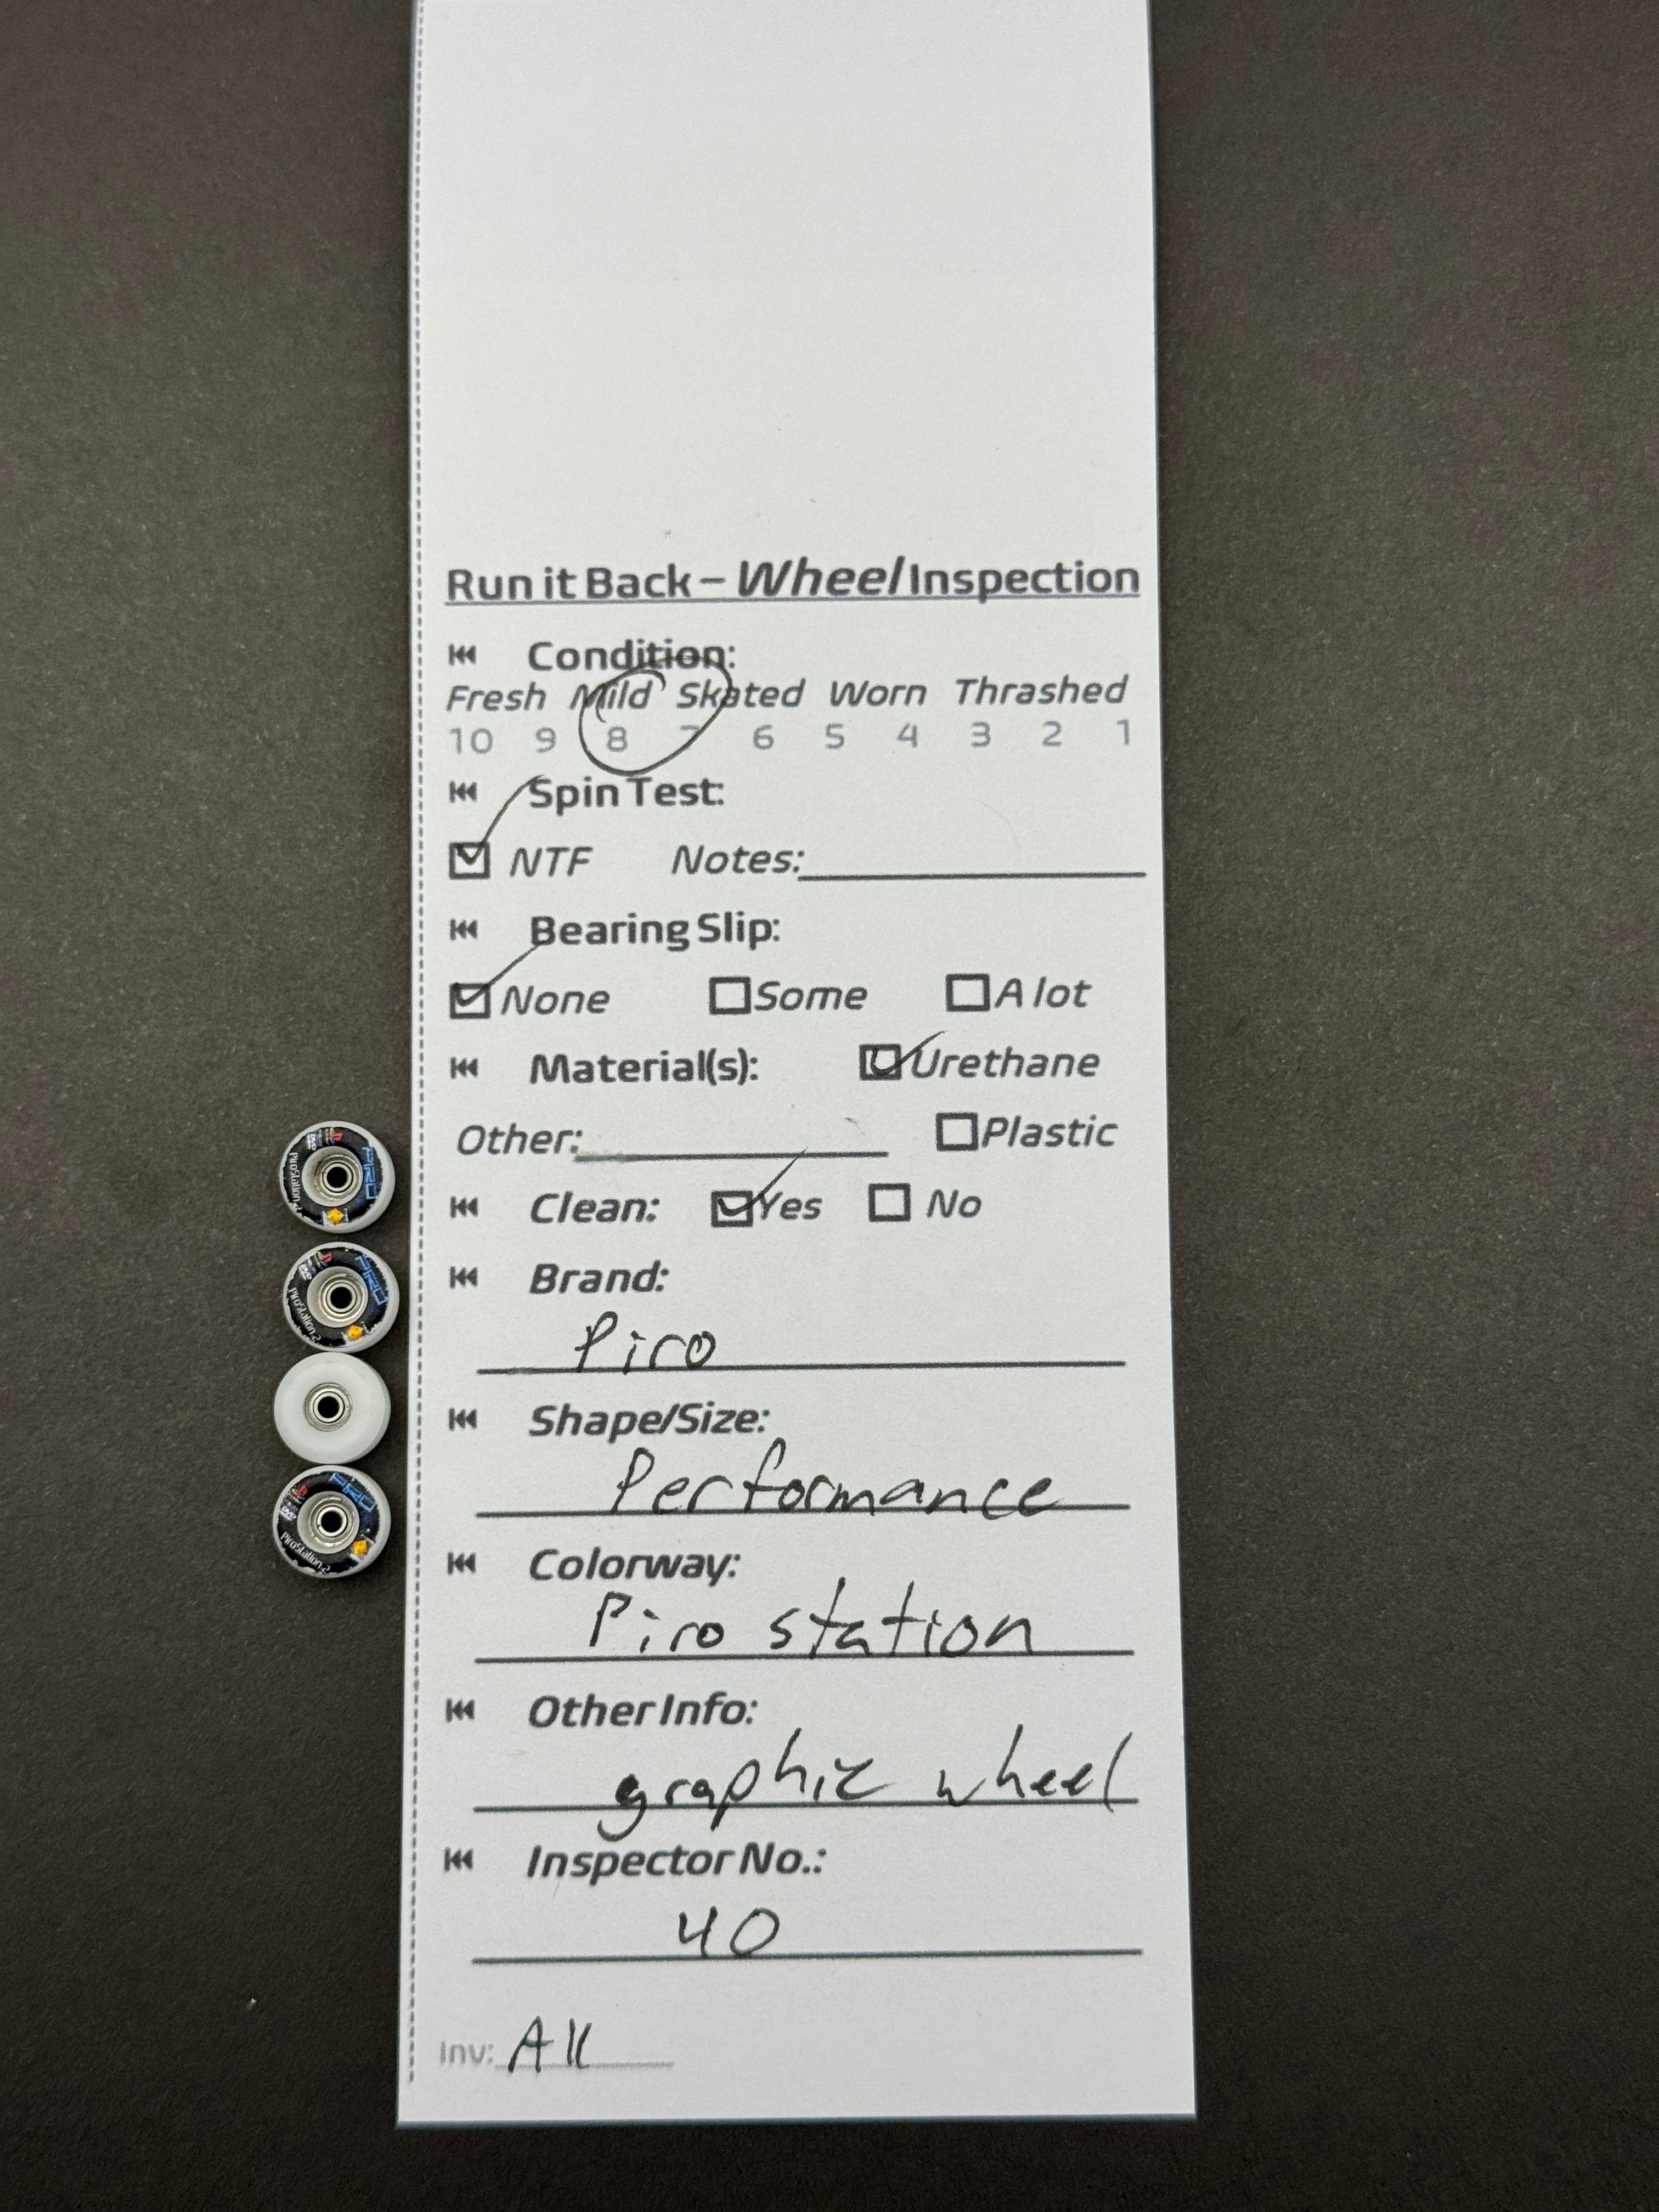 Run it Back – Wheel Inspection
Condition:
Fresh Mild Skated Worn Thrashed
10 9 8 7 6 5 4 3 2 1
Spin Test:
NTF Notes:
Bearing Slip:
None Some A lot
Material(s): Urethane
Other: Plastic
Clean: Yes No
Brand:
Piro
Shape/Size:
Performance
Colorway:
Piro station
Other Info:
graphic wheel
Inspector No.:
40
Inv: All
PIRO
PiroStation 2
PIRO
PiroStation 2
PIRO
PiroStation 2